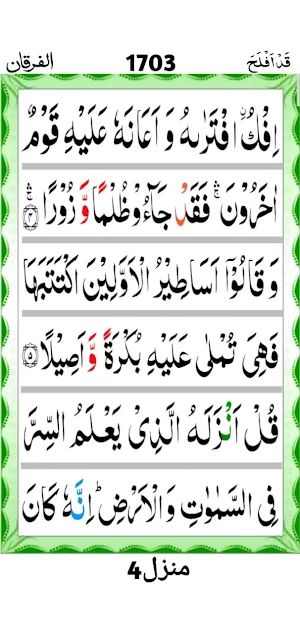 الفرقان 1703 قَدْ اَفْلَحَ
اِفْكُ اۨفْتَرٰىهُ وَ اَعَانَهٗ عَلَيْهِ قَوْمٌ
اٰخَرُوْنَ ۛۚ فَقَدْ جَآءُوْ ظُلْمًا وَّ زُوْرًا ۛۚ ۴
وَ قَالُوْۤا اَسَاطِيْرُ الْاَوَّلِيْنَ اكْتَتَبَهَا
فَهِیَ تُمْلٰى عَلَيْهِ بُكْرَةً وَّ اَصِيْلًا ۵
قُلْ اَنْزَلَهُ الَّذِیْ يَعْلَمُ السِّرَّ
فِی السَّمٰوٰتِ وَ الْاَرْضِ ؕ اِنَّهٗ كَانَ
منزل4